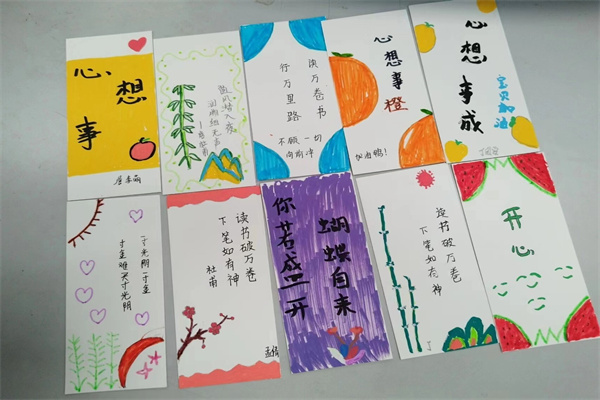 心想
事
随风潜入夜
读万卷书
行万里路
不顾一切
向前冲
心想事橙
加油鸭!
心想事成
宝贝加油
一寸光阴一寸金
寸金难买寸光阴
读书破万卷
下笔如有神
杜甫
你若盛开
蝴蝶自来
读书破万卷
下笔如有神
开心